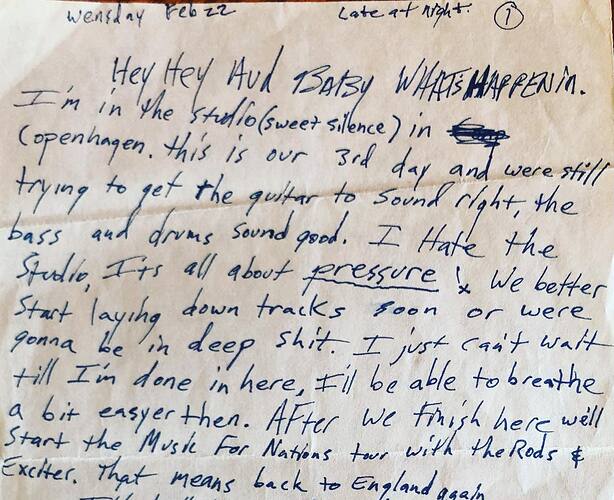 Wensday Feb 22 Late at night. 1
Hey Hey Aud BABY WHATS HAPPENIN.
I'm in the studio (sweet silence) in
Copenhagen. this is our 3rd day and were still
trying to get the guitar to sound right, the
bass and drums sound good. I Hate the
Studio, It's all about pressure! We better
Start laying down tracks soon or were
gonna be in deep shit. I just can't wait
till I'm done in here, I'll be able to breathe
a bit easyer then. AFter we Finish here we'll
Start the Music For Nations tour with the Rods &
Exciter. That means back to England again